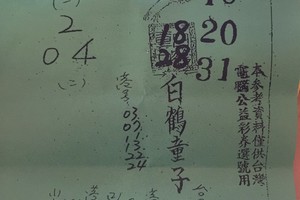 本參考資料僅供台灣
電腦公益彩券選號用
20
31
18
28
白鶴童子
03
07
13
22
24
(二)
2
04